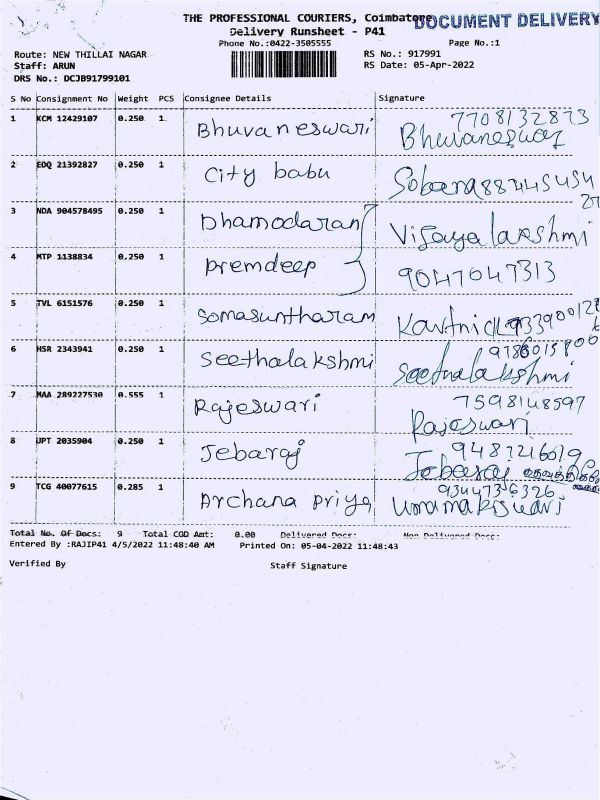 THE PROFESSIONAL COURIERS, Coimbatore
DOCUMENT DELIVERY
Delivery Runsheet - P41
Phone No.:0422-3505555 Page No.:1
Route: NEW THILLAI NAGAR RS No.: 917991
Staff: ARUN RS Date: 05-Apr-2022
DRS No.: DCJB91799101
S No Consignment No Weight PCS Consignee Details Signature
7708132873
1 KCM 12429107 0.250 1 Bhuvaneswari Bhuvaneswari
2 EDQ 21392827 0.250 1 City babu
3 NDA 904578495 0.250 1 Dhamodaran Vijayalakshmi
4 MTP 1138834 0.250 1 Premdeep 9047047313
5 TVL 6151576 0.250 1 Somasuntharam
6 HSR 2343941 0.250 1 Seethalakshmi Seethalakshmi
7598148597
7 MAA 289227530 0.555 1 Rajeswari Rajeswari
9487216019
8 JPT 2035904 0.250 1 Jebaraj Jebaraj
9344736326
9 TCG 40077615 0.285 1 Archana Priya
Total No. Of Docs: 9 Total COD Amt: 0.00 Delivered Docs: Non Delivered Docs:
Entered By :RAJIP41 4/5/2022 11:48:40 AM Printed On: 05-04-2022 11:48:43
Verified By Staff Signature